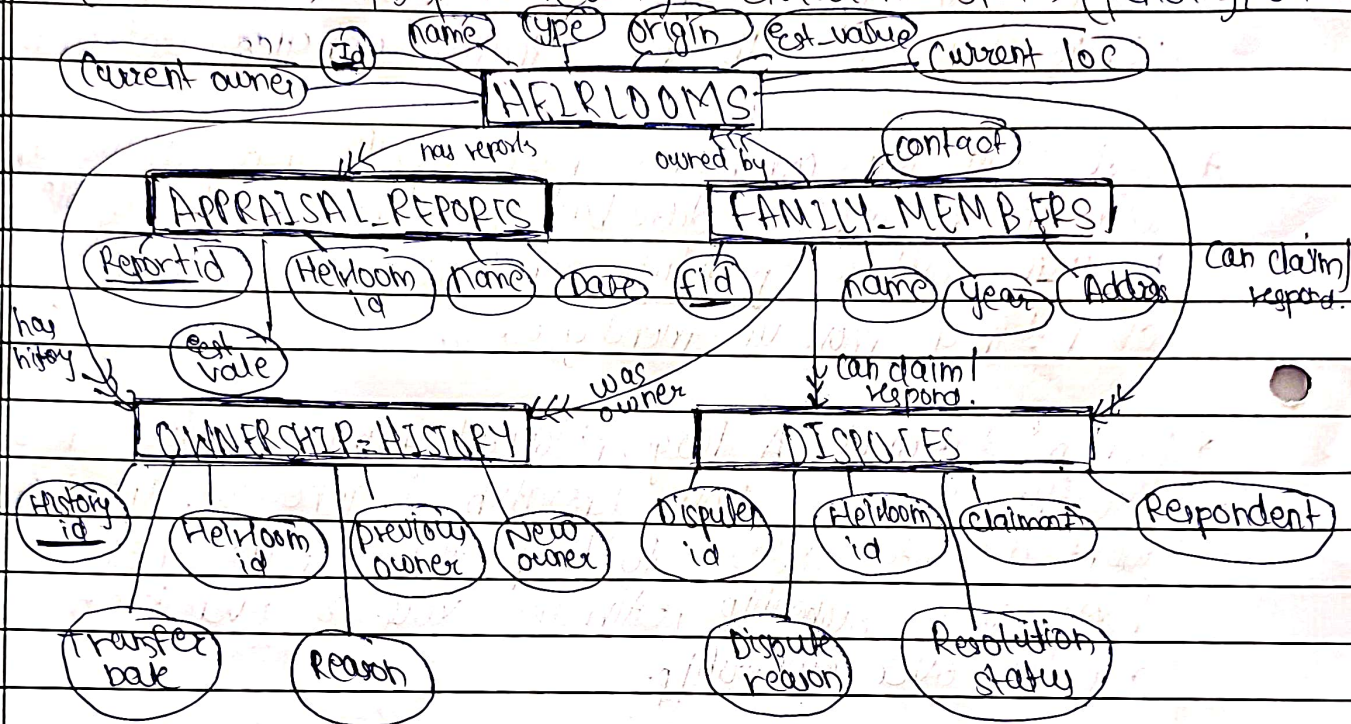 name
type
origin
Est_value
Id
Current owner
Current loc
HEIRLOOMS
has reports
owned by
contact
APPRAISAL_REPORTS
FAMILY_MEMBERS
Report id
Heirloom
id
name
Date
fid
name
year
Addres
can claim/
respond.
has
history
est
vale
was
owner
can claim/
respond.
OWNERSHIP-HISTORY
DISPUTES
History
id
Heirloom
id
previous
owner
New
owner
Dispute
id
Heirloom
id
claimant
Respondent
Transfer
Date
Reason
Dispute
reason
Resolution
status